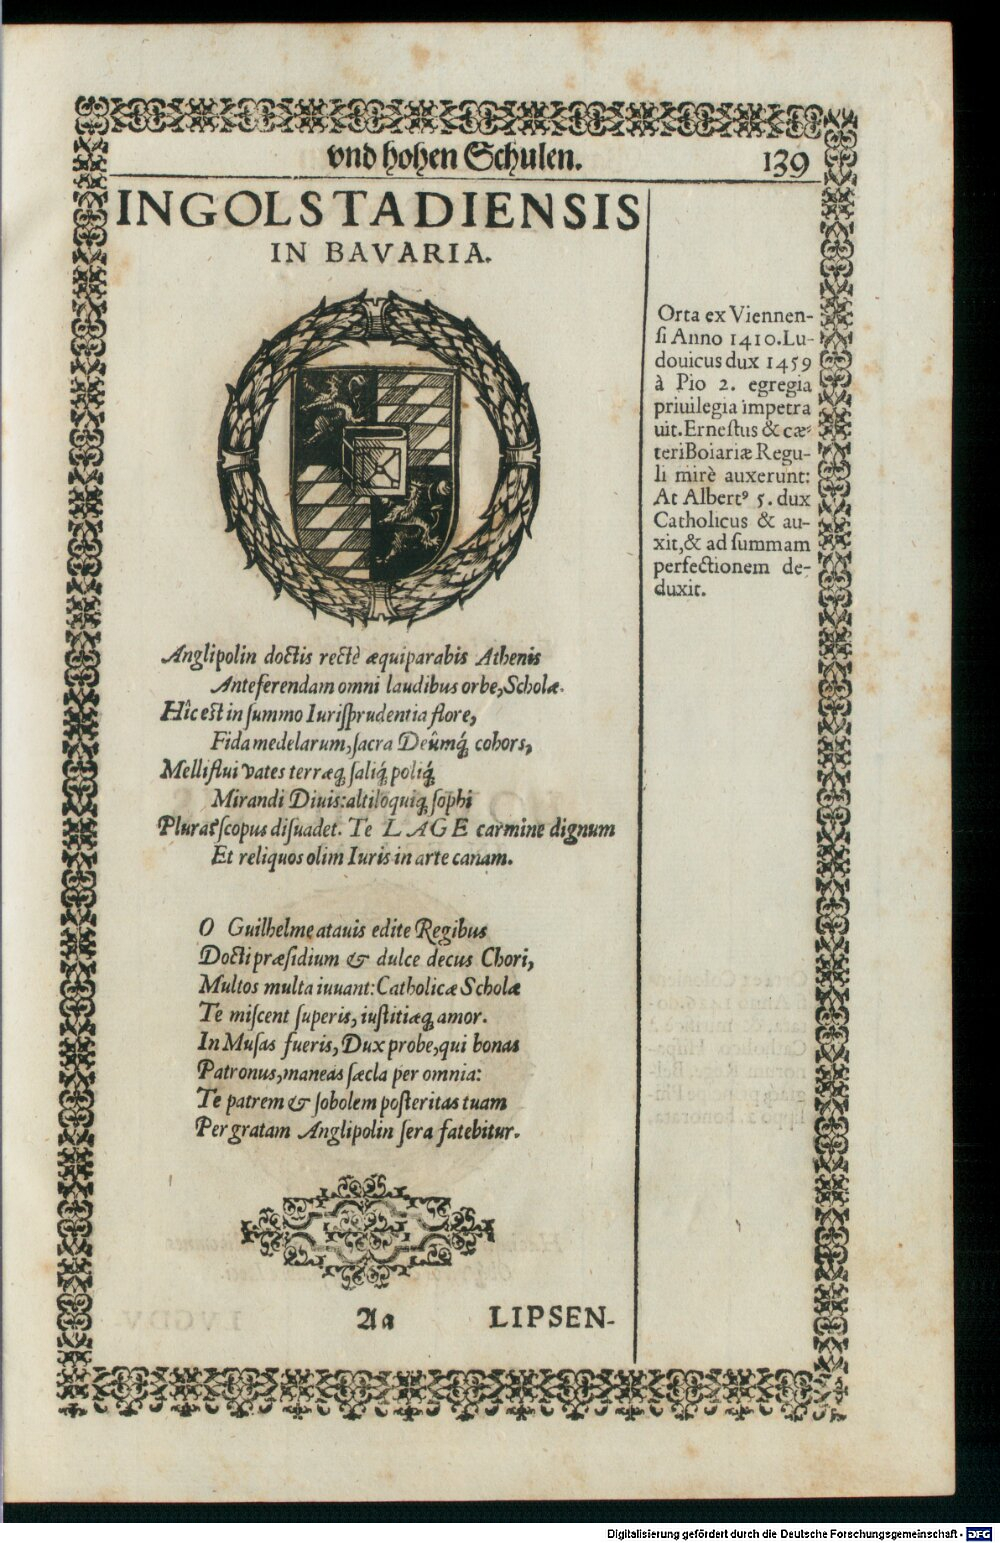 vnd hohen Schulen. 139
INGOLSTADIENSIS
IN BAVARIA.
Orta ex Viennen-
si Anno 1410. Lu-
douicus dux 1459
à Pio 2. egregia
priuilegia impetra
uit. Ernestus & cæ-
teri Boiariæ Regu-
li mirè auxerunt:
At Albertꝰ 5. dux
Catholicus & au-
xit, & ad summam
perfectionem de-
duxit.
Anglipolin doctis rectè æquiparabis Athenis
Anteferendam omni laudibus orbe, Scholæ.
Hîc est in summo Iurisprudentia flore,
Fida medelarum, sacra Deûmq́; cohors,
Melliflui vates terræq; saliq́; poliq́;
Mirandi Diuis: altiloquiq; sophi
Plura scopus disuadet. Te LAGE carmine dignum
Et reliquos olim Iuris in arte canam.
O Guilhelme atauis edite Regibus
Docti præsidium & dulce decus Chori,
Multos multa iuuant: Catholicæ Scholæ
Te miscent superis, iustitiæq; amor.
In Musas fueris, Dux probe, qui bonas
Patronus, maneas sæcla per omnia:
Te patrem & sobolem posteritas tuam
Per gratam Anglipolin sera fatebitur.
Aa LIPSEN-
Digitalisierung gefördert durch die Deutsche Forschungsgemeinschaft - DFG